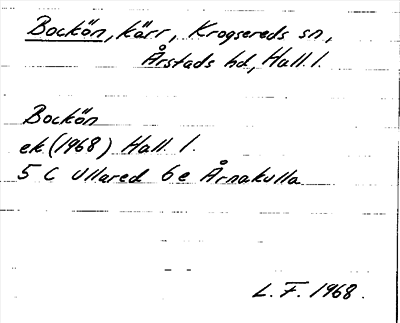 Bockön, kärr, Krogsereds sn,
Årstads hd, Hall. l.
Bockön
ek (1968) Hall. l.
5 C Ullared 6 e Årnakulla
L. F. 1968.